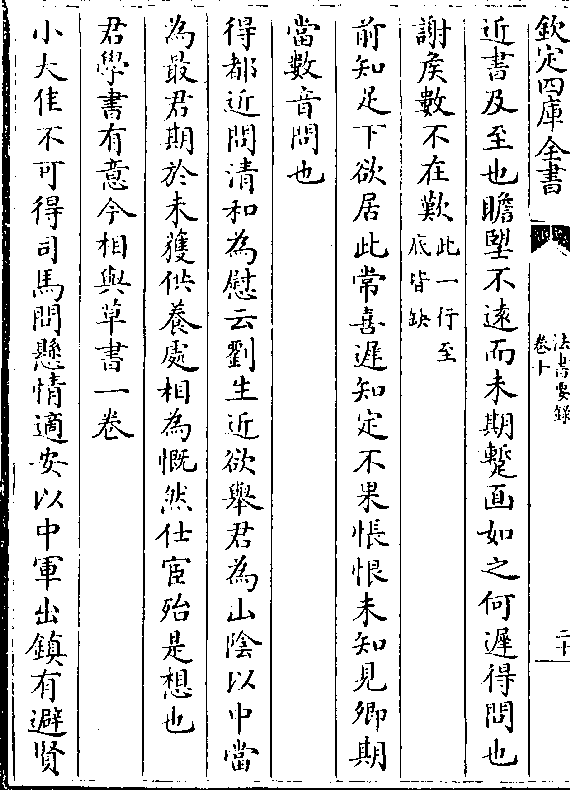 欽定四庫全書
法書要錄
卷十
二十
近書及至也瞻朢不遠而未期蹔面如之何遲得問也
謝矦數不在歎此一行至
底皆缺
前知足下欲居此常喜遲知定不果悵恨未知見卿期
當數音問也
得都近問清和為慰云劉生近欲舉君為山陰以中當
為最君期於未獲供養處相為慨然仕宦殆是想也
君學書有意今相與草書一卷
小大佳不可得司馬問懸情適安以中軍出鎮有避賢